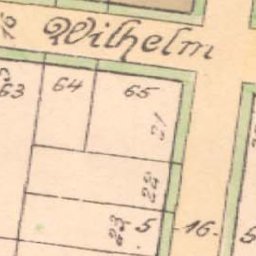 Wilhelm
63 64 65
21
22
23 5 -16- 5